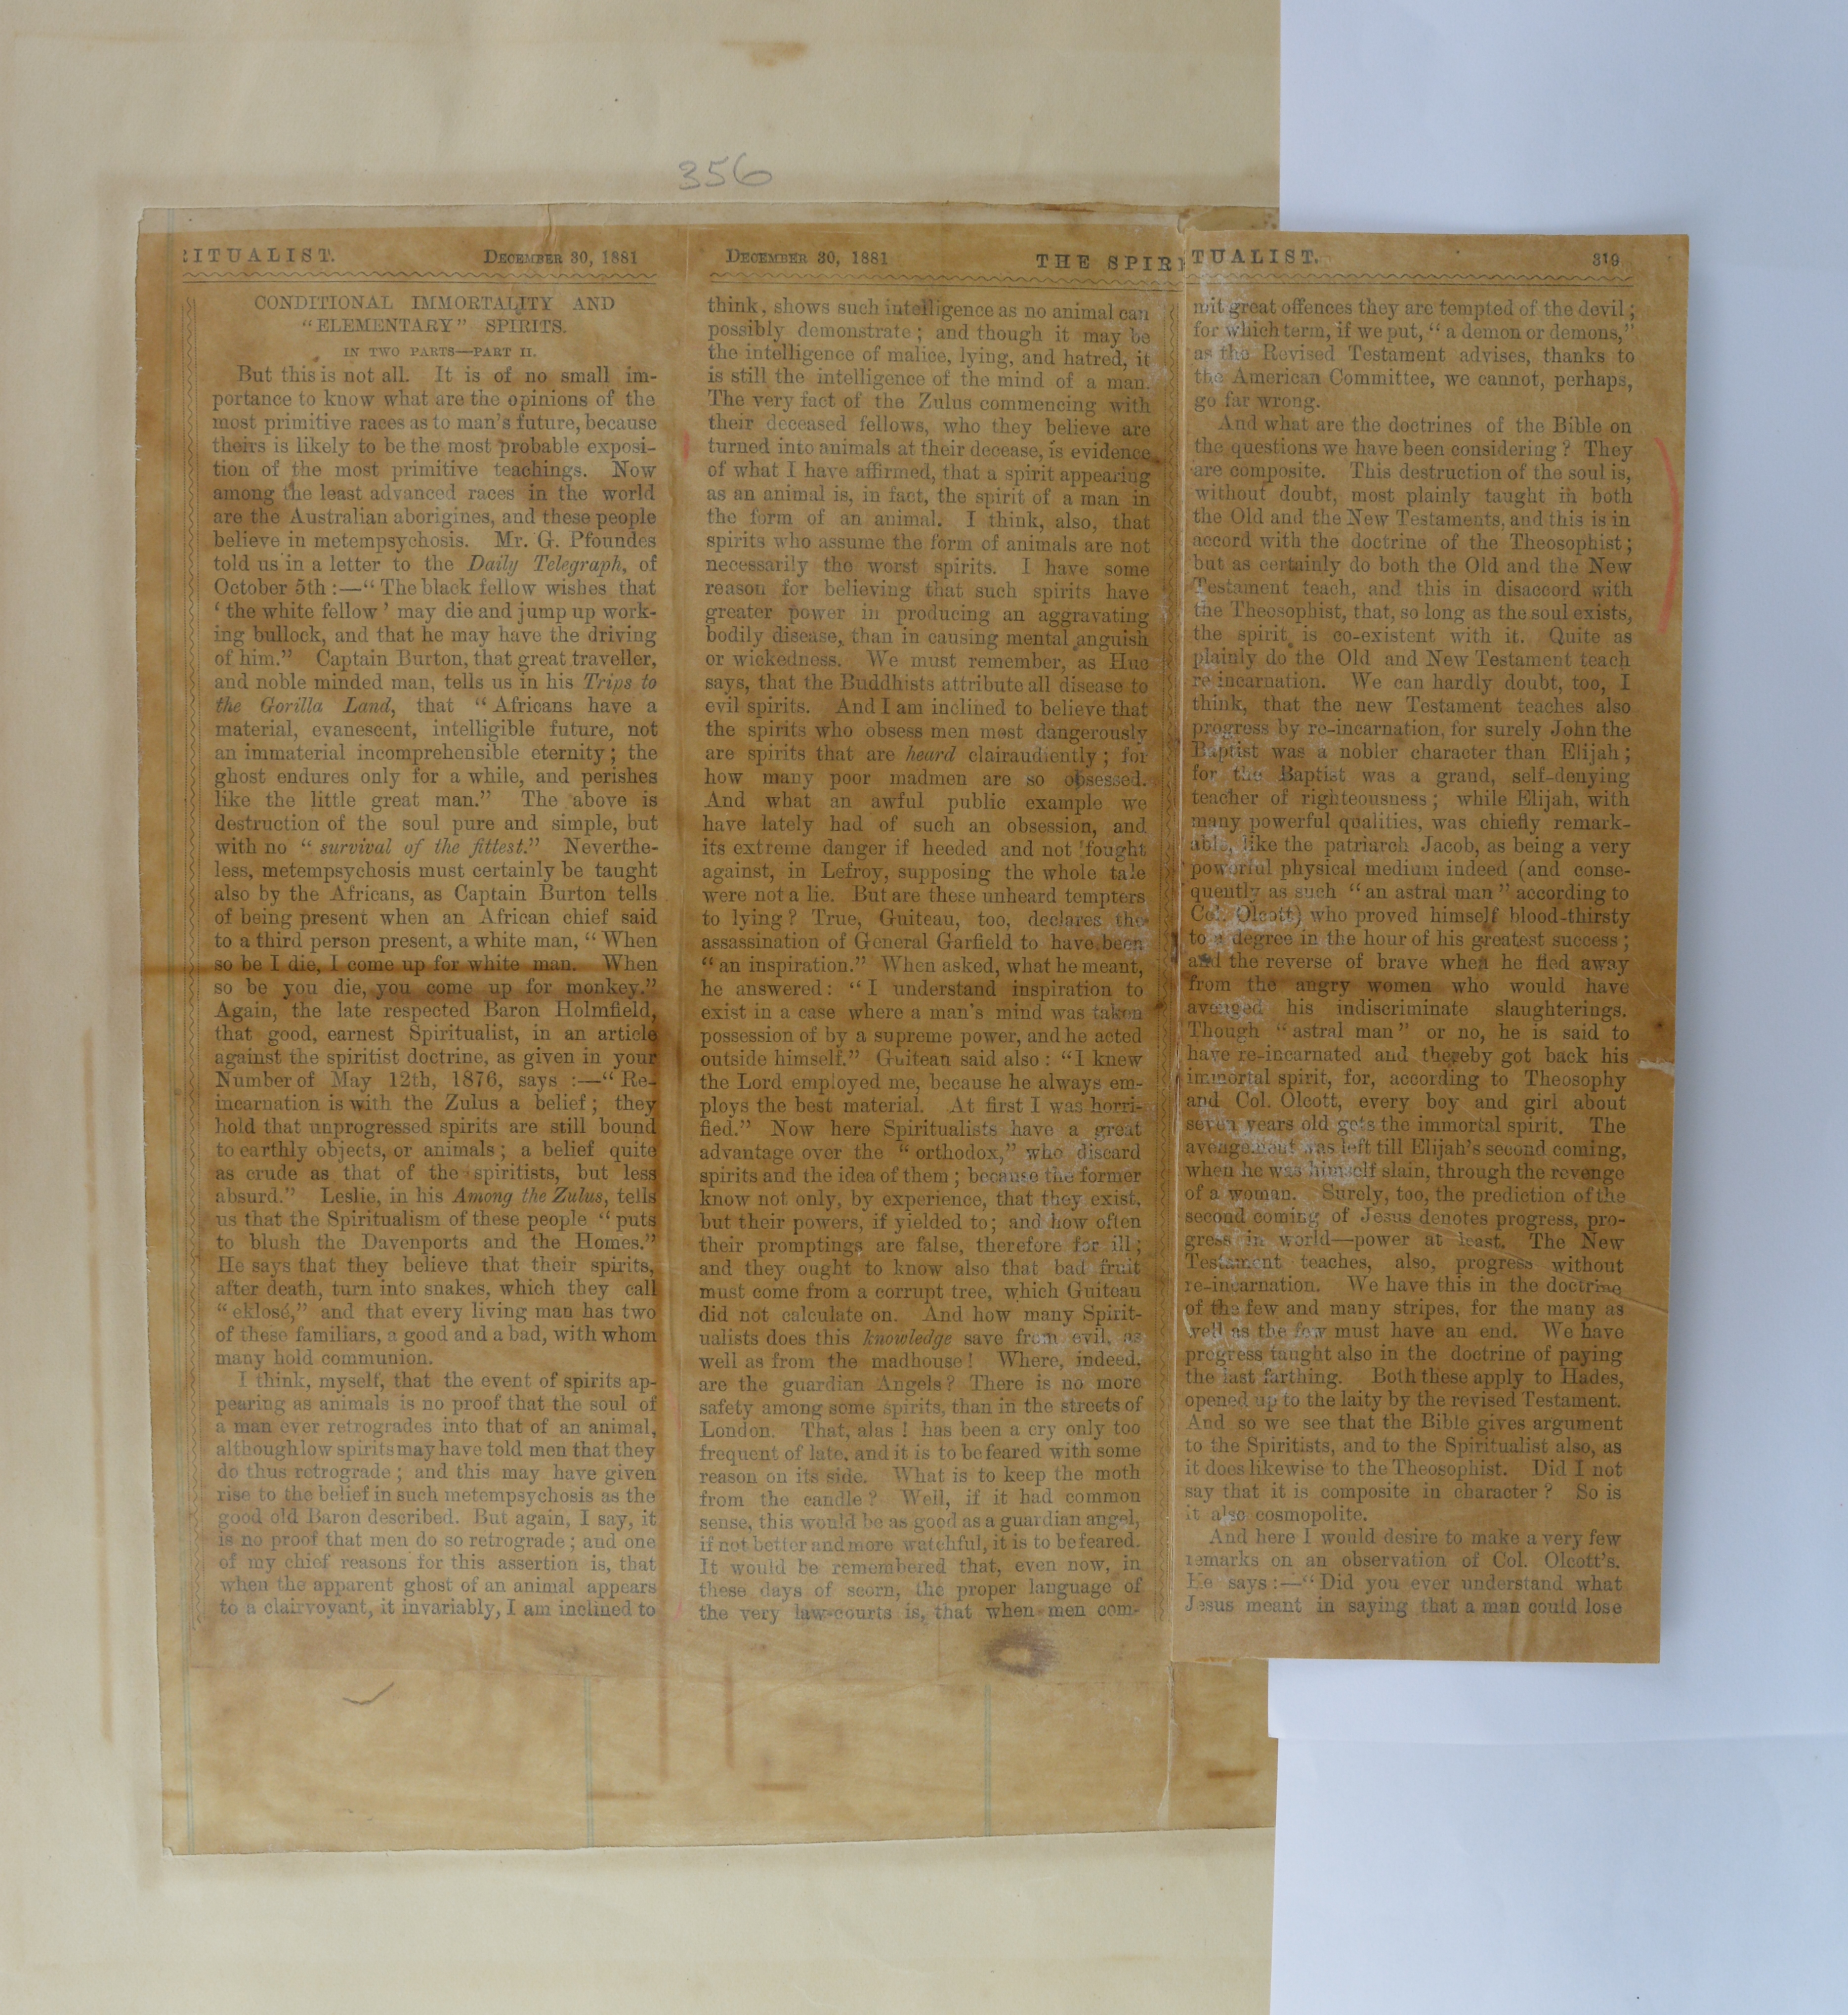 356
RITUALIST. DECEMBER 30, 1881
CONDITIONAL IMMORTALITY AND
"ELEMENTARY" SPIRITS.
IN TWO PARTS—PART II.
But this is not all. It is of no small im-
portance to know what are the opinions of the
most primitive races as to man's future, because
theirs is likely to be the most probable exposi-
tion of the most primitive teachings. Now
among the least advanced races in the world
are the Australian aborigines, and these people
believe in metempsychosis. Mr. G. Pfoundes
told us in a letter to the Daily Telegraph, of
October 5th :—"The black fellow wishes that
'the white fellow' may die and jump up work-
ing bullock, and that he may have the driving
of him." Captain Burton, that great traveller,
and noble minded man, tells us in his Trips to
the Gorilla Land, that "Africans have a
material, evanescent, intelligible future, not
an immaterial incomprehensible eternity; the
ghost endures only for a while, and perishes
like the little great man." The above is
destruction of the soul pure and simple, but
with no "survival of the fittest." Neverthe-
less, metempsychosis must certainly be taught
also by the Africans, as Captain Burton tells
of being present when an African chief said
to a third person present, a white man, "When
so be I die, I come up for white man. When
so be you die, you come up for monkey."
Again, the late respected Baron Holmfield,
that good, earnest Spiritualist, in an article
against the spiritist doctrine, as given in your
Number of May 12th, 1876, says :—"Re-
incarnation is with the Zulus a belief; they
hold that unprogressed spirits are still bound
to earthly objects, or animals; a belief quite
as crude as that of the spiritists, but less
absurd." Leslie, in his Among the Zulus, tells
us that the Spiritualism of these people "puts
to blush the Davenports and the Homes."
He says that they believe that their spirits,
after death, turn into snakes, which they call
"eklosé," and that every living man has two
of these familiars, a good and a bad, with whom
many hold communion.
I think, myself, that the event of spirits ap-
pearing as animals is no proof that the soul of
a man ever retrogrades into that of an animal,
although low spirits may have told men that they
do thus retrograde; and this may have given
rise to the belief in such metempsychosis as the
good old Baron described. But again, I say, it
is no proof that men do so retrograde; and one
of my chief reasons for this assertion is, that
when the apparent ghost of an animal appears
to a clairvoyant, it invariably, I am inclined to
DECEMBER 30, 1881 THE SPIRITUALIST. 319
think, shows such intelligence as no animal can
possibly demonstrate; and though it may be
the intelligence of malice, lying, and hatred, it
is still the intelligence of the mind of a man.
The very fact of the Zulus commencing with
their deceased fellows, who they believe are
turned into animals at their decease, is evidence
of what I have affirmed, that a spirit appearing
as an animal is, in fact, the spirit of a man in
the form of an animal. I think, also, that
spirits who assume the form of animals are not
necessarily the worst spirits. I have some
reason for believing that such spirits have
greater power in producing an aggravating
bodily disease, than in causing mental anguish
or wickedness. We must remember, as Huc
says, that the Buddhists attribute all disease to
evil spirits. And I am inclined to believe that
the spirits who obsess men most dangerously
are spirits that are heard clairaudiently; for
how many poor madmen are so obsessed.
And what an awful public example we
have lately had of such an obsession, and
its extreme danger if heeded and not fought
against, in Lefroy, supposing the whole tale
were not a lie. But are these unheard tempters
to lying? True, Guiteau, too, declares the
assassination of General Garfield to have been
"an inspiration." When asked, what he meant,
he answered: "I understand inspiration to
exist in a case where a man's mind was taken
possession of by a supreme power, and he acted
outside himself." Guiteau said also: "I knew
the Lord employed me, because he always em-
ploys the best material. At first I was horri-
fied." Now here Spiritualists have a great
advantage over the "orthodox," who discard
spirits and the idea of them; because the former
know not only, by experience, that they exist,
but their powers, if yielded to; and how often
their promptings are false, therefore for ill;
and they ought to know also that bad fruit
must come from a corrupt tree, which Guiteau
did not calculate on. And how many Spirit-
ualists does this knowledge save from evil, as
well as from the madhouse! Where, indeed,
are the guardian Angels? There is no more
safety among some spirits, than in the streets of
London. That, alas! has been a cry only too
frequent of late, and it is to be feared with some
reason on its side. What is to keep the moth
from the candle? Well, if it had common
sense, this would be as good as a guardian angel,
if not better and more watchful, it is to be feared.
It would be remembered that, even now, in
these days of scorn, the proper language of
the very law-courts is, that when men com-
mit great offences they are tempted of the devil;
for which term, if we put, "a demon or demons,"
as the Revised Testament advises, thanks to
the American Committee, we cannot, perhaps,
go far wrong.
And what are the doctrines of the Bible on
the questions we have been considering? They
are composite. This destruction of the soul is,
without doubt, most plainly taught in both
the Old and the New Testaments, and this is in
accord with the doctrine of the Theosophist;
but as certainly do both the Old and the New
Testament teach, and this in disaccord with
the Theosophist, that, so long as the soul exists,
the spirit is co-existent with it. Quite as
plainly do the Old and New Testament teach
re-incarnation. We can hardly doubt, too, I
think, that the new Testament teaches also
progress by re-incarnation, for surely John the
Baptist was a nobler character than Elijah;
for the Baptist was a grand, self-denying
teacher of righteousness; while Elijah, with
many powerful qualities, was chiefly remark-
able, like the patriarch Jacob, as being a very
powerful physical medium indeed (and conse-
quently as such "an astral man" according to
Col. Olcott) who proved himself blood-thirsty
to a degree in the hour of his greatest success;
and the reverse of brave when he fled away
from the angry women who would have
avenged his indiscriminate slaughterings.
Though "astral man" or no, he is said to
have re-incarnated and thereby got back his
immortal spirit, for, according to Theosophy
and Col. Olcott, every boy and girl about
seven years old gets the immortal spirit. The
avengement was left till Elijah's second coming,
when he was himself slain, through the revenge
of a woman. Surely, too, the prediction of the
second coming of Jesus denotes progress, pro-
gress in world—power at least. The New
Testament teaches, also, progress without
re-incarnation. We have this in the doctrine
of the few and many stripes, for the many as
well as the few must have an end. We have
progress taught also in the doctrine of paying
the last farthing. Both these apply to Hades,
opened up to the laity by the revised Testament.
And so we see that the Bible gives argument
to the Spiritists, and to the Spiritualist also, as
it does likewise to the Theosophist. Did I not
say that it is composite in character? So is
it also cosmopolite.
And here I would desire to make a very few
remarks on an observation of Col. Olcott's.
He says:—"Did you ever understand what
Jesus meant in saying that a man could lose